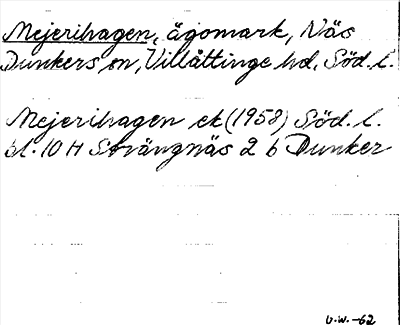 Mejerihagen, ägomark, Näs
Dunkers sn, Villåttinge hd, Söd. l.
Mejerihagen ek (1958) Söd. l.
bl. 10 H Strängnäs 2 b Dunker
U.W. -62